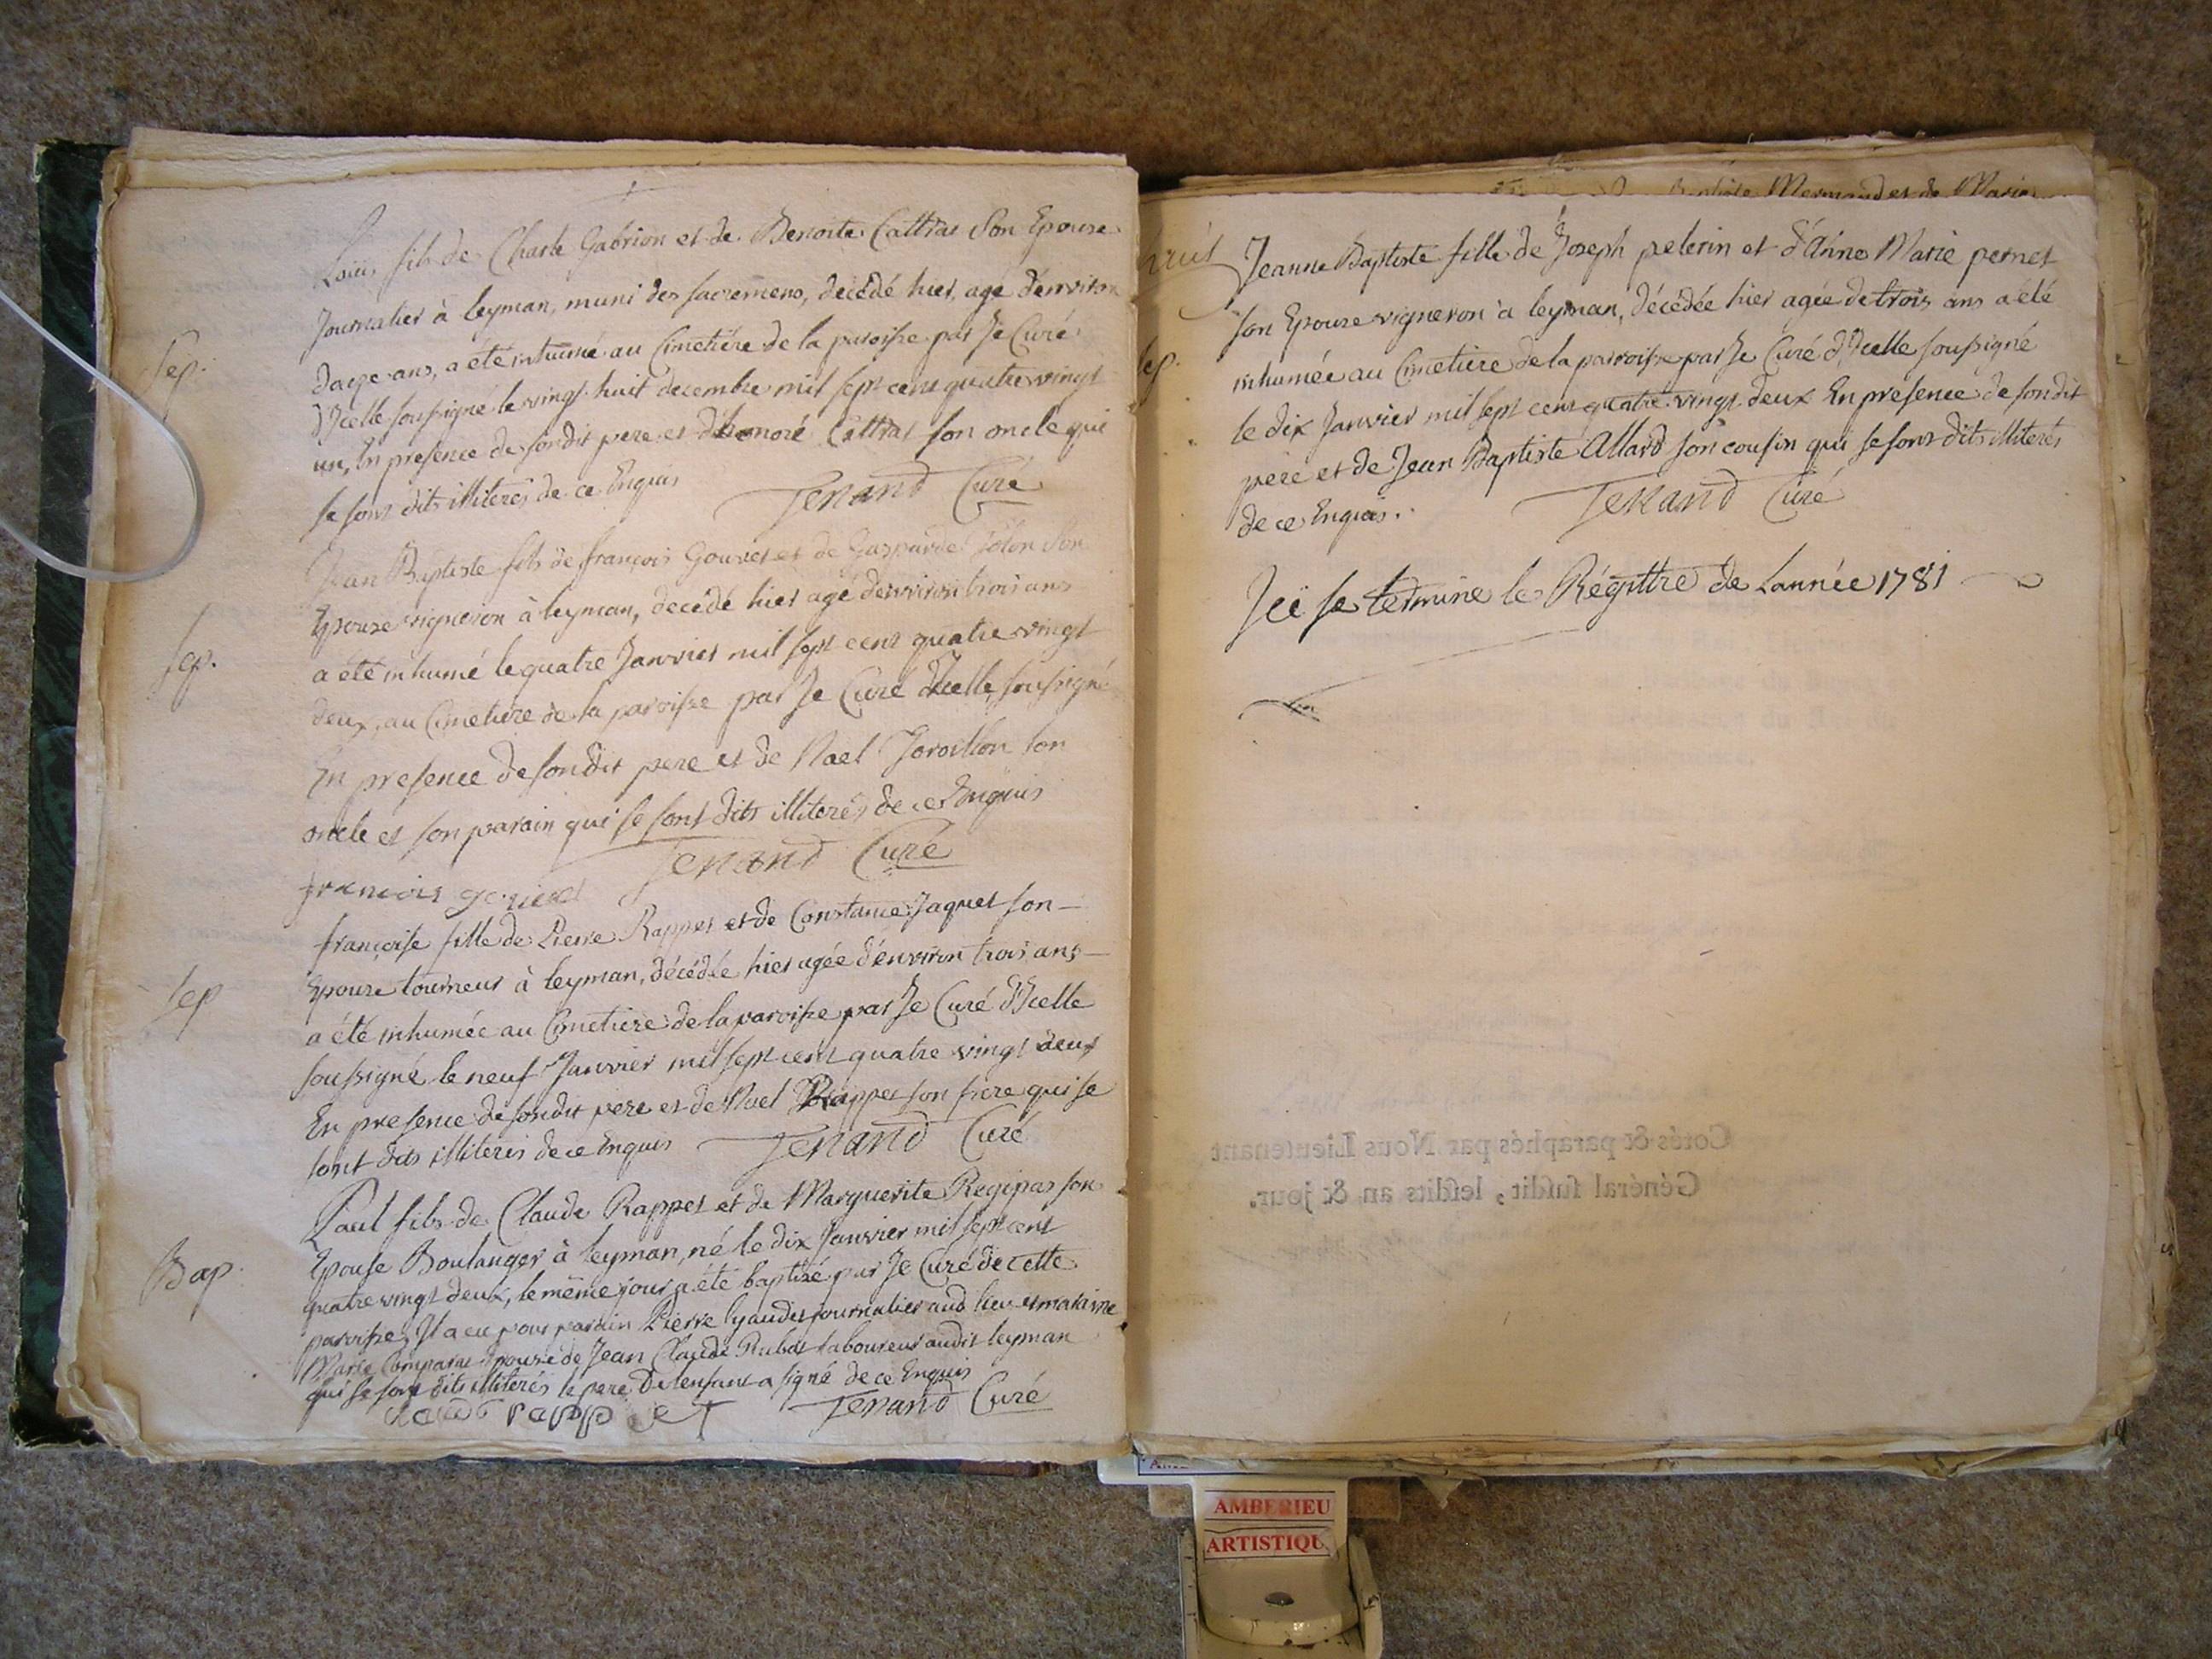 Loüis fils de Charle Gabrion et de Benoite Cattras Son Epouse
Journalier à leyman, muni des sacremens, décédé hier, agé d'environ
Sep.
ans, a été inhumé au Cimetiére de la paroisse par Je Curé
d'Icelle soussigné le vingt huit decembre mil sept cent quatre vingt
un, En presence de sondit pere et d'honoré Cattras son oncle qui
se sont dits illiterés de ce Enquis
Tenand Curé
Jean Baptiste fils de françois Gouvet et de Gasparde Son
Epouse vigneron à leyman, decédé hier agé d'environ trois ans
Sep.
a été inhumé le quatre Janvier mil sept cent quatre vingt
deux, au Cimetiere de la paroisse par Je Curé d'Icelle soussigné
En presence de sondit pere et de Noel son
oncle et son parain qui se sont dits illiterés de ce Enquis
Tenand Curé
francois
françoise fille de Pierre Rappet et de Constance Jaquet son
Epouse tourneur à leyman, décédée hier agée d'environ trois ans
Sep
a été inhumée au Cimetiere de la paroisse par Je Curé d'Icelle
soussigné le neuf Janvier mil sept cent quatre vingt deux
En presence de sondit pere et de Noel Rappet son frere qui se
sont dits illiterés de ce Enquis
Tenand Curé
Paul fils de Claude Rappet et de Marguerite Regipas son
Epouse Boulanger à leyman, né le dix Janvier mil sept cent
Bap.
quatre vingt deux, le même jour a été baptisé par Je Curé de cette
paroisse, Il a eu pour parain Pierre lyaudet journalier aud lieu et maraine
Marie Epouse de Jean Claude Rubat laboureur audit leyman
qui se sont dits illiterés le pere De lenfant a signé de ce Enquis
rappet
Tenand Curé
Jeanne Baptiste fille de Joseph pelerin et d'Anne Marie pernet
son Epouse vigneron à leyman, décédée hier agée de trois ans a été
Sep.
inhumée au Cimetiere de la parroisse par Je Curé d'Icelle soussigné
le dix Janvier mil sept cent quatre vingt deux En présence de sondit
père et de Jean Baptiste Allard son cousin qui se sont dits illiterés
de ce Enquis.
Tenand Curé
Icï se termine le Régittre de Lannée 1781
Cotés & paraphés par Nous Lieutenant
Général susdit, lesdits an & jour.
AMBERIEU
ARTISTIQU